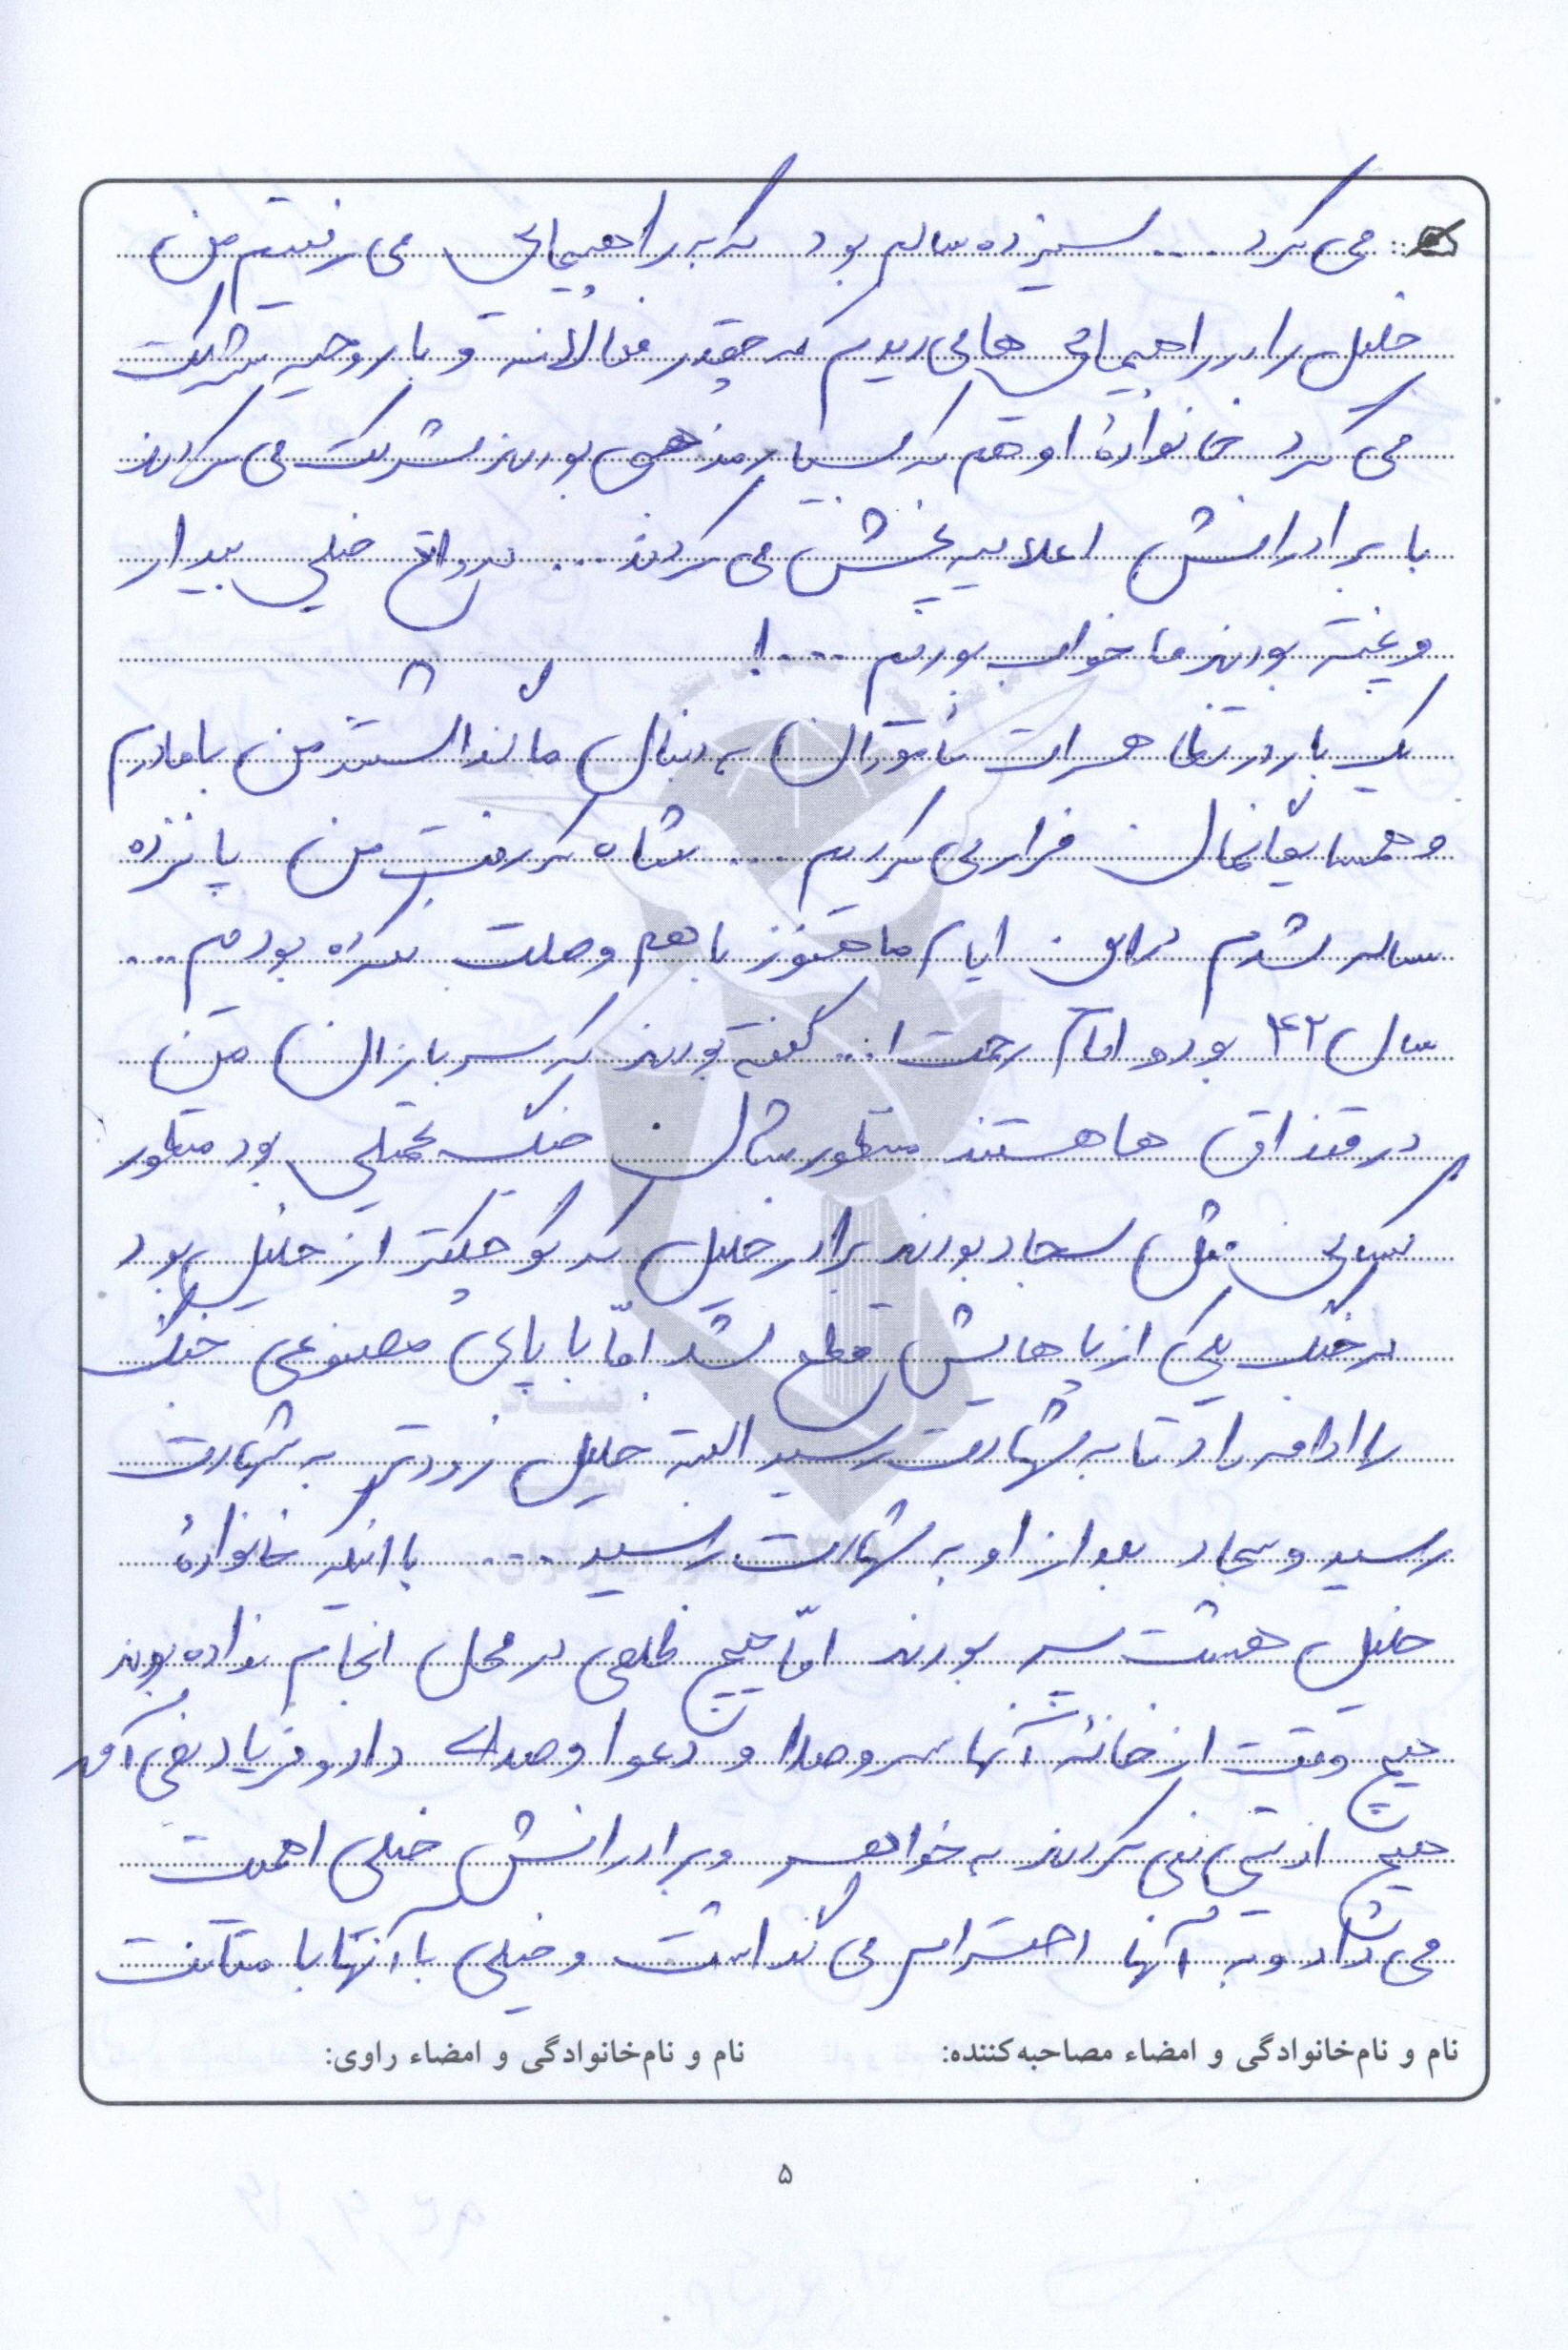 می کرد .... سیزده سالم بود که به راهپیمایی می رفتیم من
خلیل را در راهپیمائی ها می دیدم که چقدر فعالانه و با روحیه شرکت
می کرد خانوادهٔ او هم که بسیار مذهبی بودند شرکت می کردند
با برادرانش اعلامیه پخش می کردند ... در واقع خیلی بیدار
و پخته بودند ما خواب بودیم ....!
یک بار در تظاهرات مأموران به دنبال ما گذاشتند من با مادرم
و همسایمانمان فرار می کردیم .... شاه که رفت من پانزده
ساله شدم در این ایام ما هنوز با هم وصلت نکرده بودیم ....
سال ۴۲ بود و امام رحمت ا... گفته بودند که سربازان من
در قنداق ها هستند منظورشان جنگ تحمیلی بود منظور
کسانی مثل سجاد بودند برادر خلیل که کوچکتر از خلیل بود
در جنگ یکی از پاهایش قطع شد امّا با پای مصنوعی جنگ
را ادامه داد تا به شهادت رسید البته خلیل زودتر به شهادت
رسید و سجاد بعد از او به شهادت رسید .... با اینکه خانوادهٔ
خلیل هشت پسر بودند امّا هیچ ظلمی در محل انجام نداده بودند
هیچ وقت از خانهٔ آنها سر و صدا و دعوا و صدای داد و فریاد نمی آمد
هیچ اذیتی نمی کردند به خواهر و برادرانش خیلی اهمیت
می داد و به آنها احترام می گذاشت و خیلی با آنها با متانت
نام و نام‌خانوادگی و امضاء مصاحبه‌کننده: نام و نام‌خانوادگی و امضاء راوی:
۵